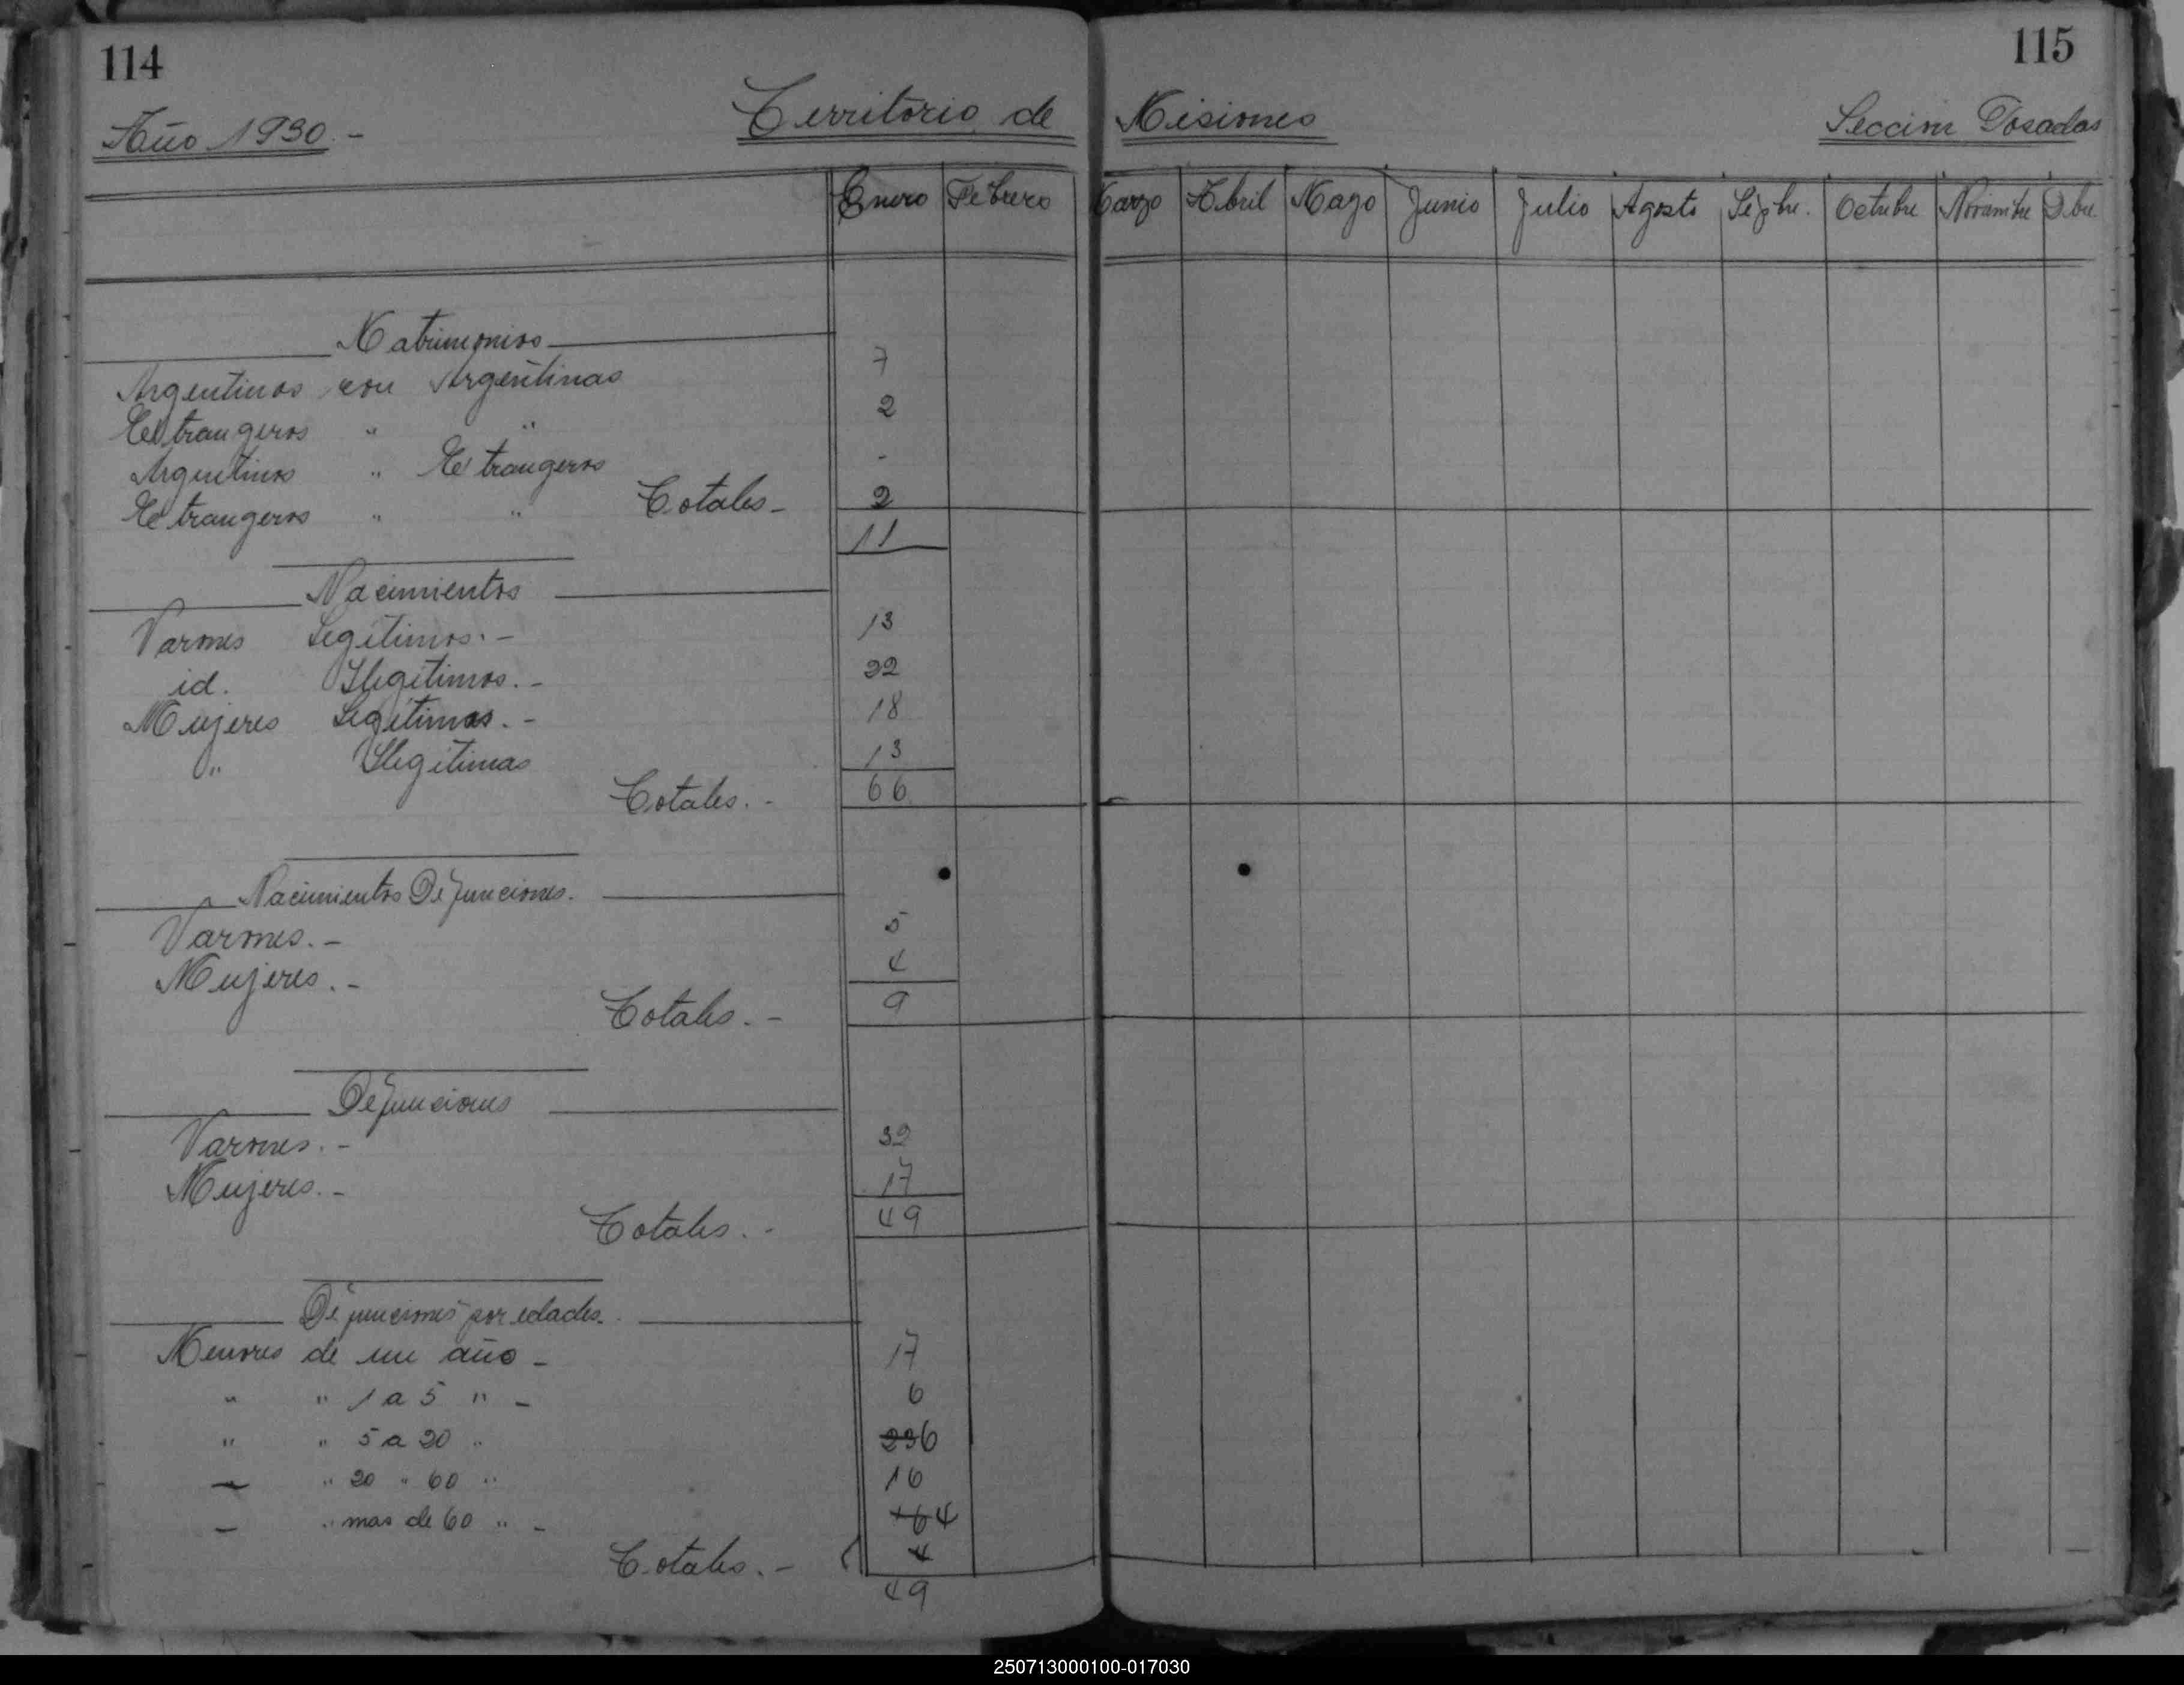 114
115
Año 1930.-
Territorio de Misiones
Sección Posadas
Enero Febrero Marzo Abril Mayo Junio Julio Agosto Sepbre. Octubre Noviembre Dbre.
Matrimonios
Argentinos con Argentinas 7
Extrangeros " " 2
Argentinos " Extrangeros -
Extrangeros " " 2
Totales- 11
Nacimientos
Varones Legítimos.- 13
id. Ilegítimos.- 22
Mujeres Legítimas.- 18
" Ilegítimas 13
Totales.- 66
Nacimientos Defunciones.
Varones.- 5
Mujeres.- 4
Totales.- 9
Defunciones
Varones.- 32
Mujeres.- 17
Totales.- 49
Defunciones por edades.
Menores de un año - 17
" " 1 a 5 " - 6
" " 5 a 20 " 236
— " 20 " 60 " 16
— " mas de 60 " - 164
4
Totales.- 49
250713000100-017030